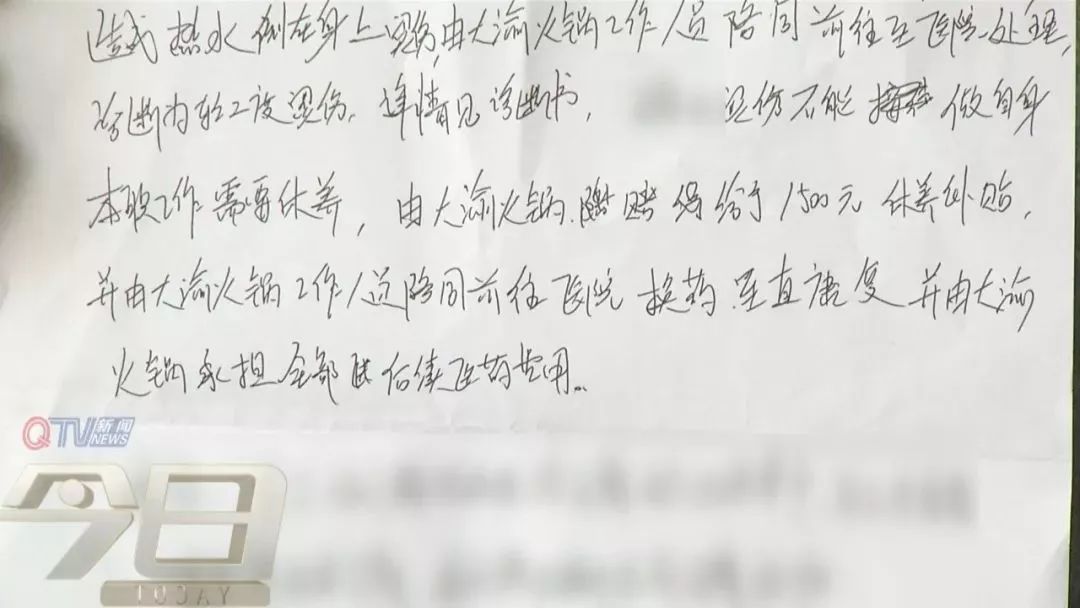 造成热水倒在身上烫伤,由大渝火锅工作人员陪同前往至医院处理,
诊断为轻二度烫伤.详情见诊断书, 烫伤不能 做自身
本职工作需要休养,由大渝火锅 赔偿给予1500元休养补贴,
并由大渝火锅工作人员陪同前往医院换药至直康复并由大渝
火锅承担全部 后续医药费用。
QTV新闻
NEWS
今日
TODAY